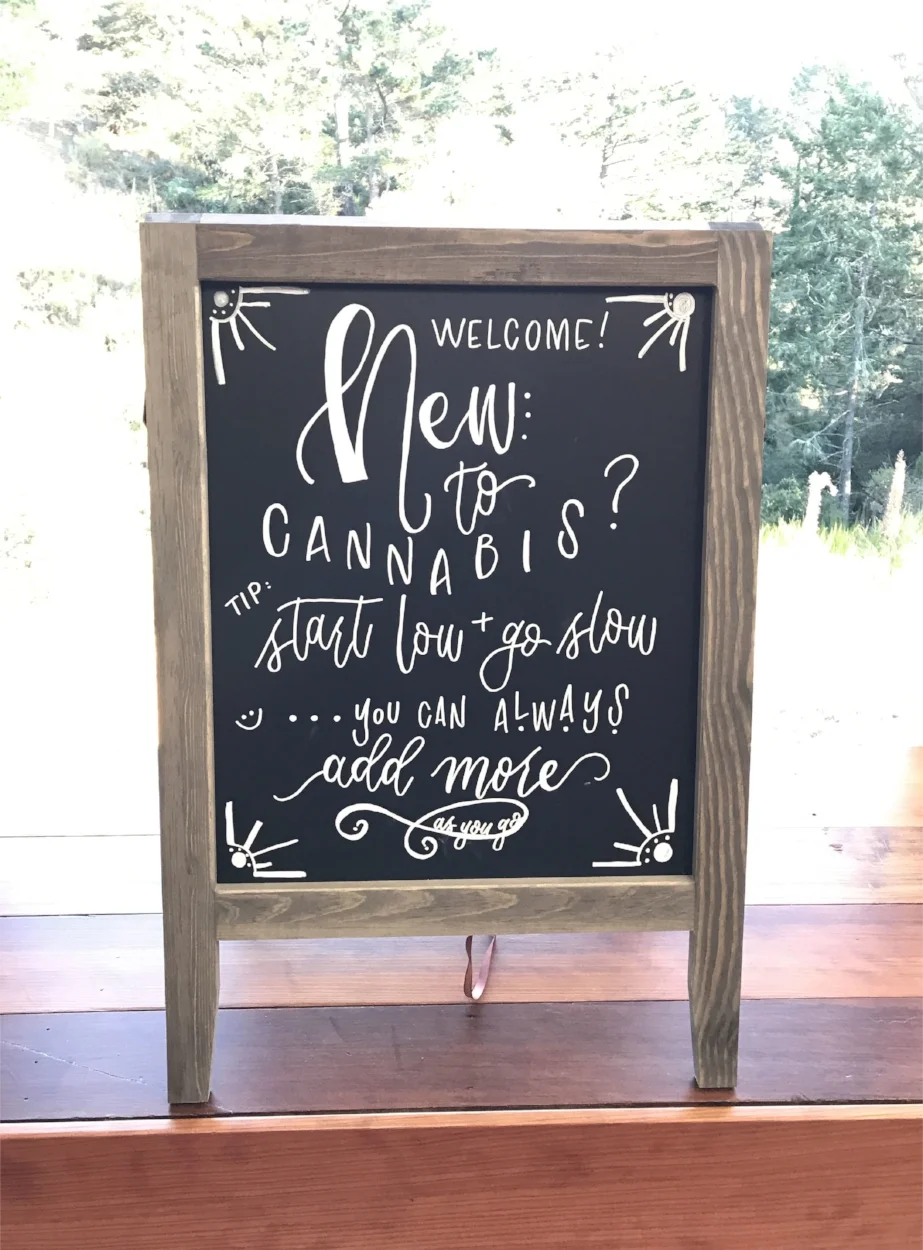 WELCOME!
New:
to
CANNABIS?
TIP:
start low + go slow
...you CAN ALWAYS
add more
as you go